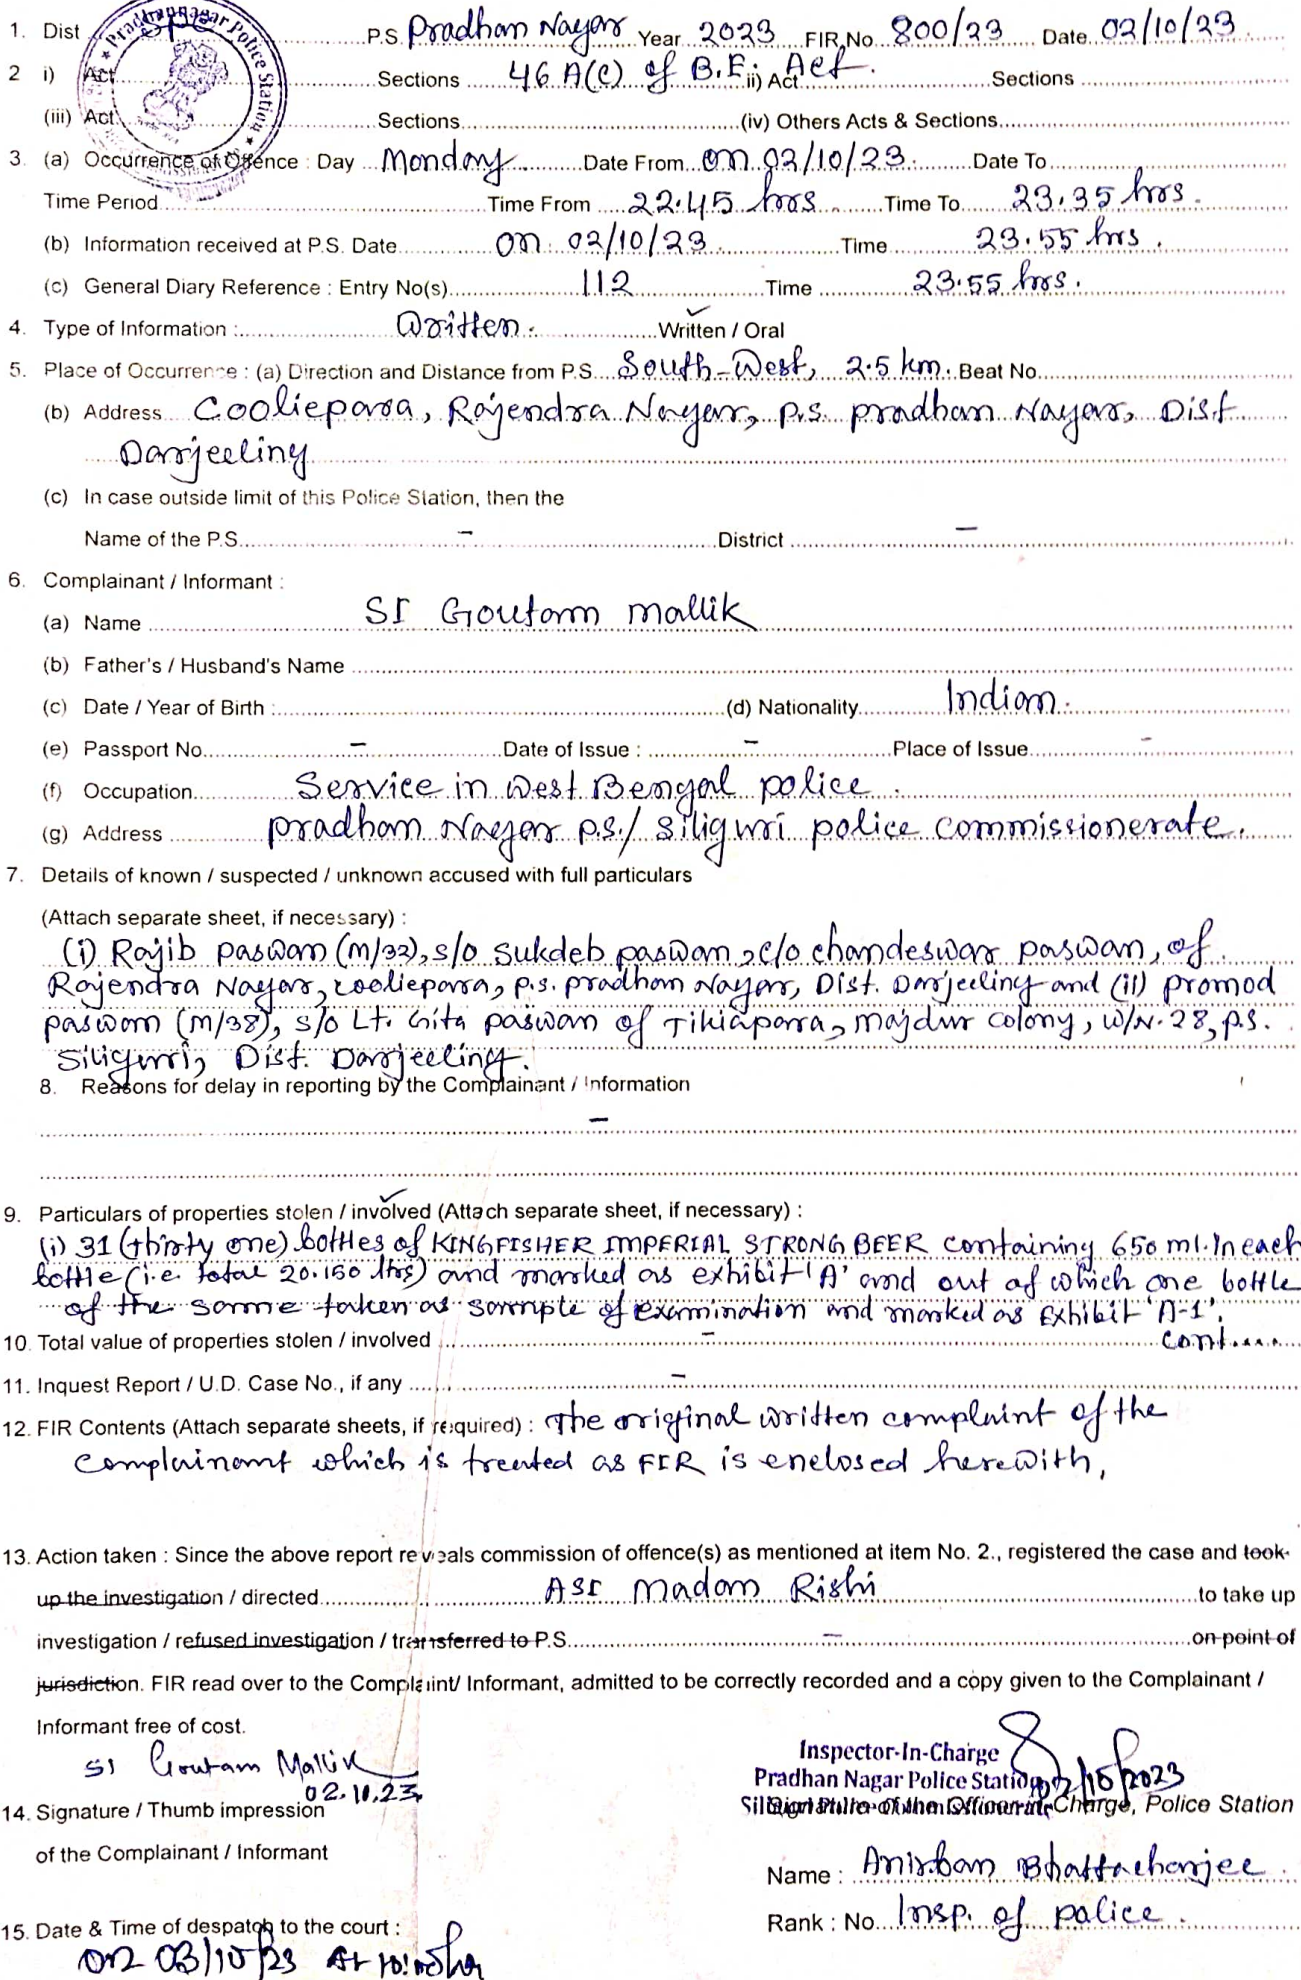 1. Dist SPC P.S. Pradhan Nagar Year 2023 FIR No 800/23 Date 02/10/23
Pradhannagar Police Station
2 i) Act Sections 46 A(C) of B.E. ii) Act Act. Sections
(iii) Act Sections (iv) Others Acts & Sections
3. (a) Occurrence of Offence : Day Monday Date From on 02/10/23. Date To
Time Period Time From 22.45 hrs Time To 23.35 hrs.
(b) Information received at P.S. Date on 02/10/23 Time 23.55 hrs.
(c) General Diary Reference : Entry No(s) 112 Time 23.55 hrs.
4. Type of Information : Written. Written / Oral
5. Place of Occurrence : (a) Direction and Distance from P.S. South-West, 2.5 km. Beat No
(b) Address Cooliepara, Rajendra Nagar, p.s. pradhan Nagar, Dist
Darjeeling
(c) In case outside limit of this Police Station, then the
Name of the P.S. – District –
6. Complainant / Informant :
(a) Name SI Goutam mallik
(b) Father's / Husband's Name
(c) Date / Year of Birth : (d) Nationality Indian.
(e) Passport No. – Date of Issue : – Place of Issue –
(f) Occupation Service in West Bengal police.
(g) Address pradhan Nagar p.s./ Siliguri police commissionerate.
7. Details of known / suspected / unknown accused with full particulars
(Attach separate sheet, if necessary) :
(i) Rajib paswan (m/32), s/o Sukdeb paswan, c/o chandeswar paswan, of
Rajendra Nagar, cooliepara, p.s. pradhan Nagar, Dist. Darjeeling and (ii) promod
paswan (m/38), s/o Lt. Gita paswan of Tikiapara, majdur colony, W/N. 28, p.s.
Siliguri, Dist. Darjeeling.
8. Reasons for delay in reporting by the Complainant / Information
–
9. Particulars of properties stolen / involved (Attach separate sheet, if necessary) :
(i) 31 (thirty one) bottles of KINGFISHER IMPERIAL STRONG BEER containing 650 ml. in each
bottle (i.e. total 20.150 ltrs) and marked as exhibit 'A' and out of which one bottle
of the same taken as sample of examination and marked as Exhibit 'A-1'.
10. Total value of properties stolen / involved – cont....
11. Inquest Report / U.D. Case No., if any –
12. FIR Contents (Attach separate sheets, if required) : The original written complaint of the
complainant which is treated as FIR is enclosed herewith,
13. Action taken : Since the above report reveals commission of offence(s) as mentioned at item No. 2., registered the case and took
up the investigation / directed ASI Madan Rishi to take up
investigation / refused investigation / transferred to P.S. – on point of
jurisdiction. FIR read over to the Complaint/ Informant, admitted to be correctly recorded and a copy given to the Complainant /
Informant free of cost.
SI Goutam Mallik
02.10.23
14. Signature / Thumb impression
of the Complainant / Informant
Inspector-In-Charge
Pradhan Nagar Police Station
02/10/2023
Siliguri Police Commissionerate
Signature of the Officer in Charge, Police Station
Name : Anirban Bhattacharjee.
Rank : No. Insp. of police.
15. Date & Time of despatch to the court :
on 03/10/23 At